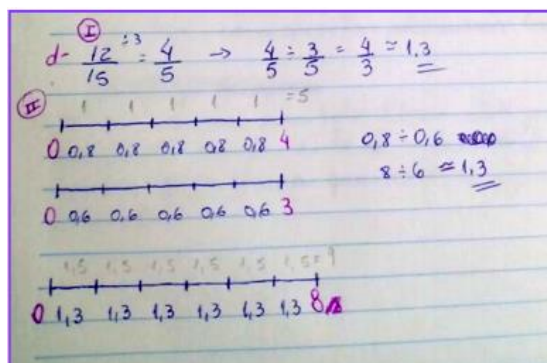 I
d- 12/15 ÷3 = 4/5 → 4/5 ÷ 3/5 = 4/3 ≈ 1,3
II
1 1 1 1 1 = 5
0 0,8 0,8 0,8 0,8 0,8 4
0,8 ÷ 0,6
8 ÷ 6 ≈ 1,3
0 0,6 0,6 0,6 0,6 0,6 3
1,5 1,5 1,5 1,5 1,5 1,5 = 9
0 1,3 1,3 1,3 1,3 1,3 1,3 8